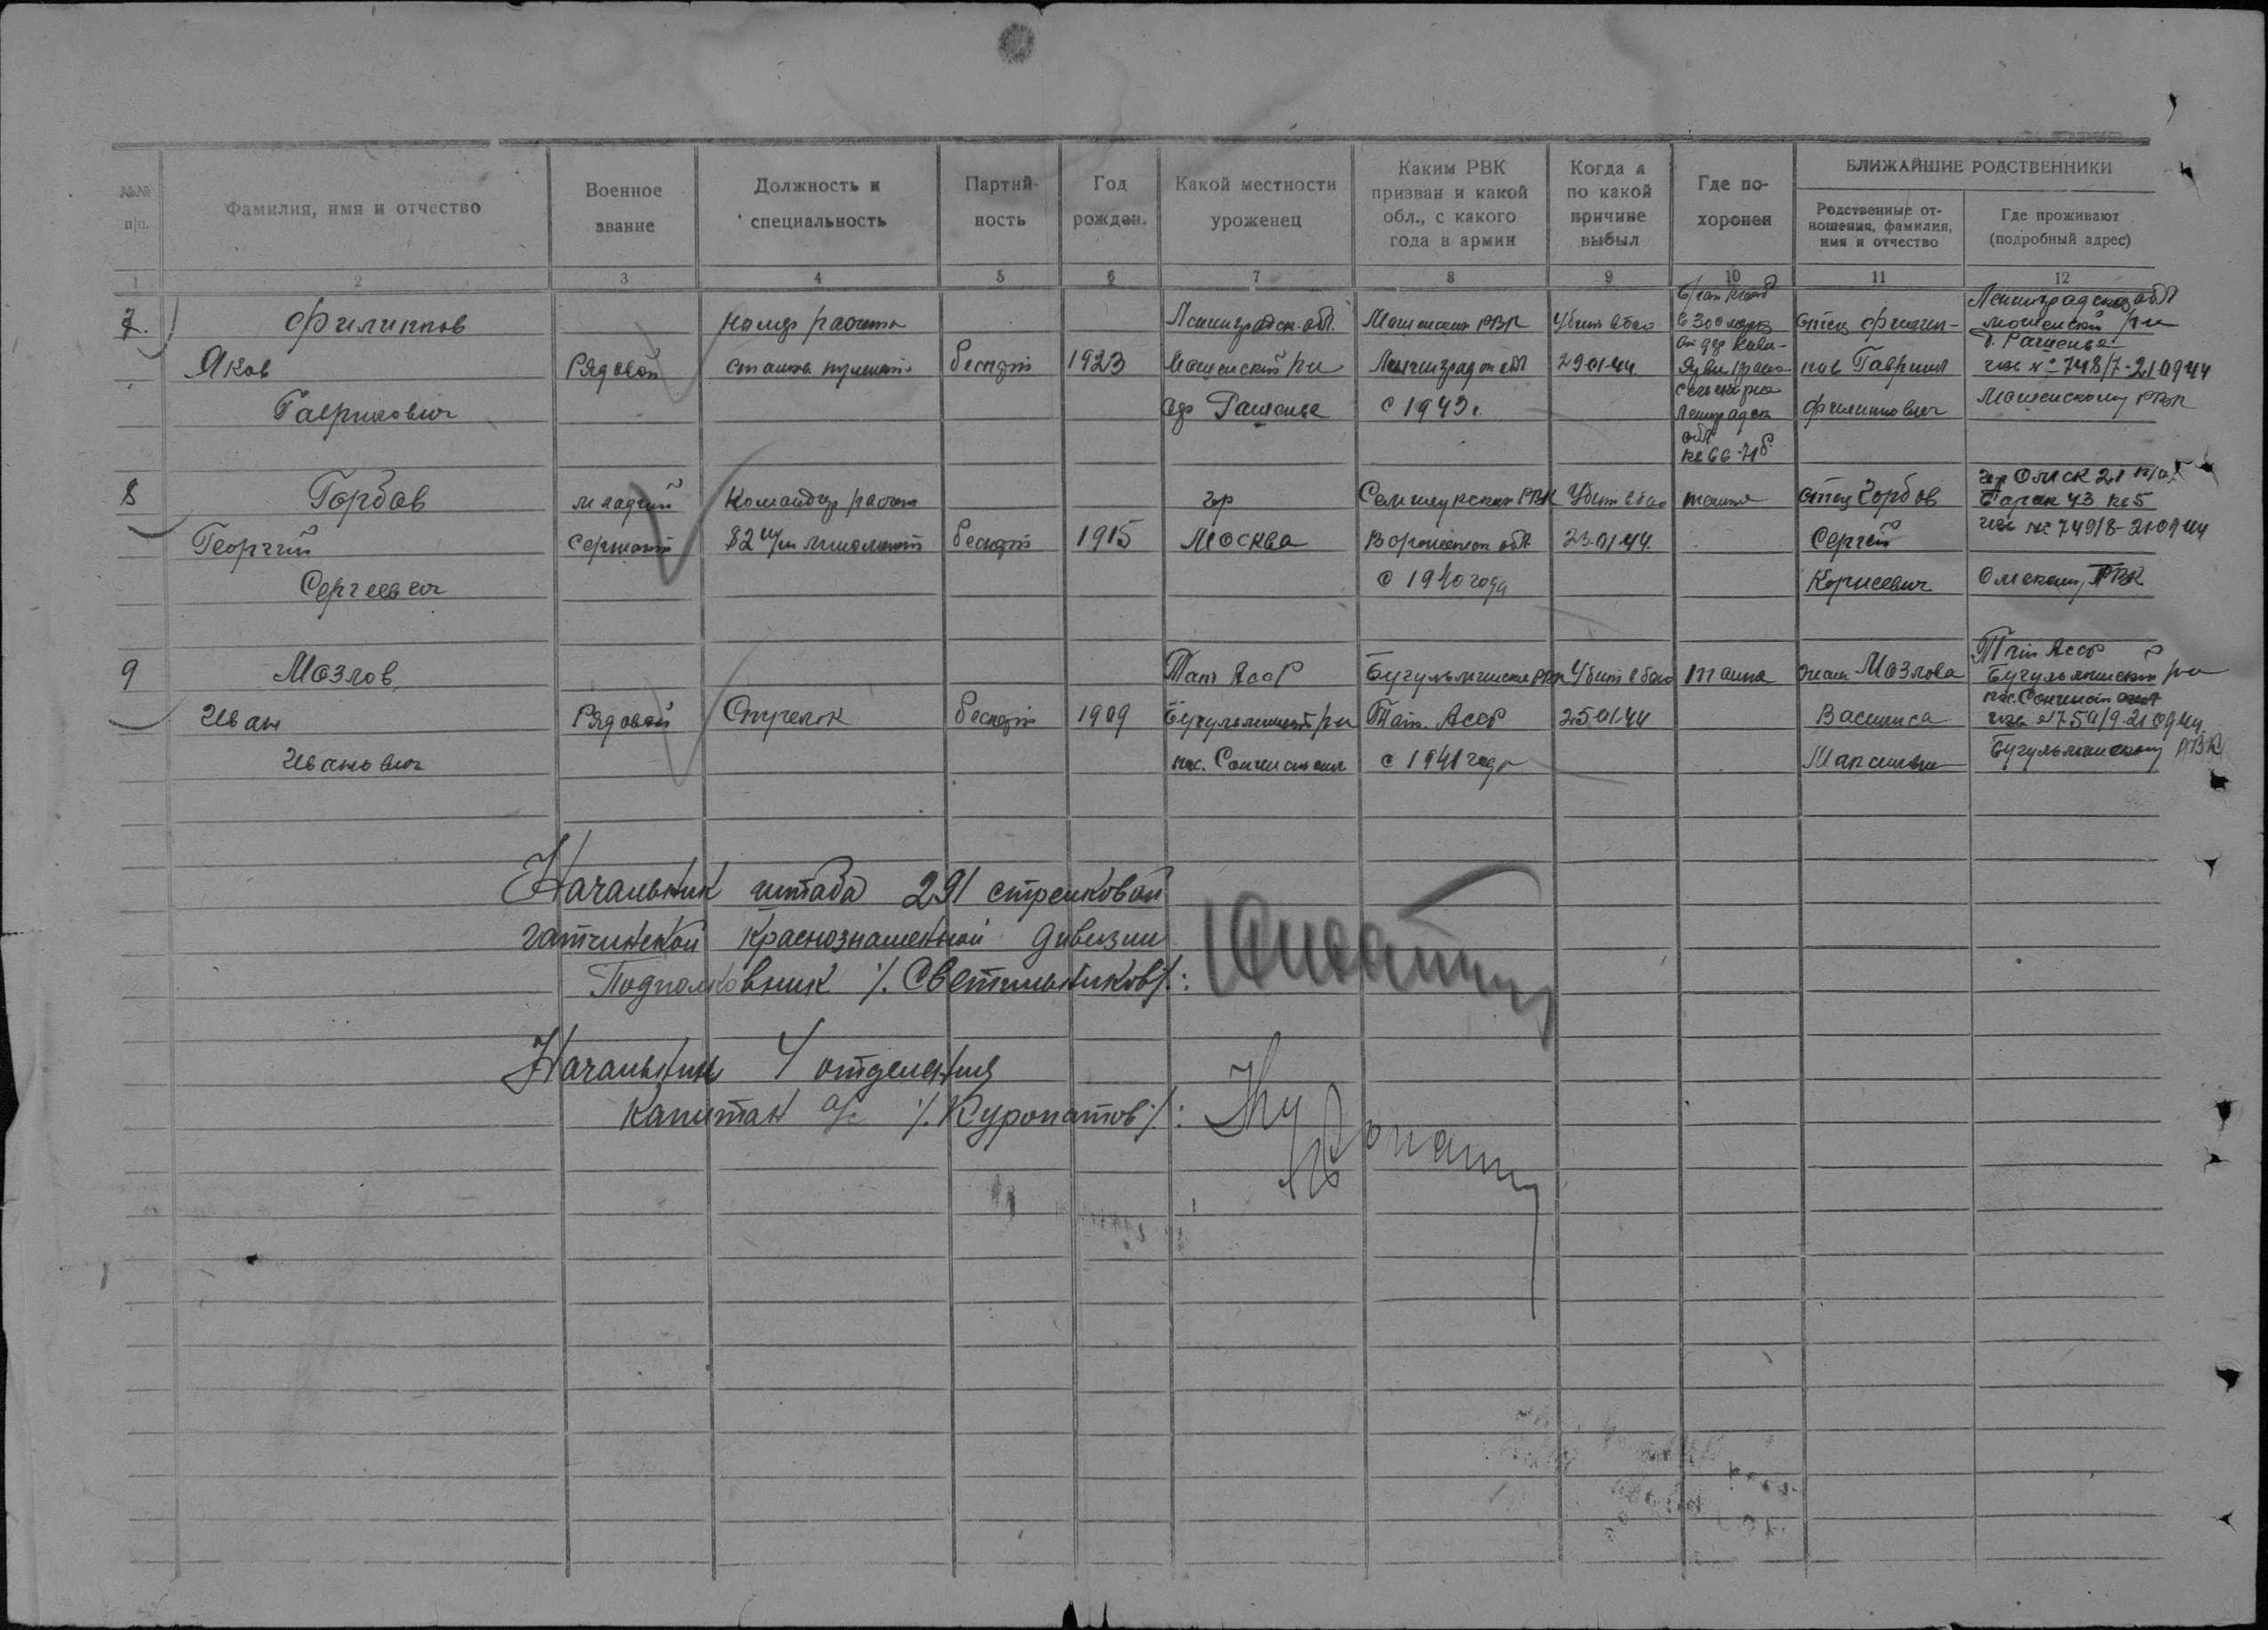 №№ п/п.
Фамилия, имя и отчество
Военное звание
Должность и специальность
Партий-
ность
Год рожден.
Какой местности уроженец
Каким РВК призван и какой обл., с какого года в армии
Когда и по какой причине выбыл
Где по-
хоронен
БЛИЖАЙШИЕ РОДСТВЕННИКИ
Родственные от-
ношения, фамилия, имя и отчество
Где проживают (подробный адрес)
1 2 3 4 5 6 7 8 9 10 11 12
7.
Филиппов
Яков
Гаврилович
Рядовой
номер расчета
станков. пулемет.
беспарт
1923
Ленинградск. обл.
Мошенской р-н
дер
Мошенским РВК
Ленинградск обл
с 1943 г.
Убит в бою
29.01.44
Ленинградск
обл
отец Филип-
пов Гавриил
Филиппович
Ленинградская обл
Мошенской р-н
изв № 748/7-21.09.44
Мошенскому РВК
8
Горбов
Георгий
Сергеевич
младший
сержант
Командир расчета
82 м/м миномет
беспарт
1915
гор
Москва
Семилукским РВК
Воронежск обл.
с 1940 года
Убит в бою
23.01.44.
отец Горбов
Сергей
гор Омск
барак 43 кв 5
изв № 749/8-21.09.44
Омскому РВК
9
Мозлов
Иван
Иванович
Рядовой
Стрелок
беспарт
1909
Тат АССР
Бугульминский р-н
пос.
Бугульминским РВК
Тат. АССР
с 1941 года
Убит в бою
25.01.44
жена Мозлова
Василиса
Тат АССР
Бугульминский р-н
изв №750/9-21.09.44.
Бугульминскому РВК
Начальник штаба 291 стрелковой
гатчинской Краснознаменной дивизии
Подполковник /. Светильников/.:
Начальник 4 отделения
капитан а/с /. Куропатов/.: